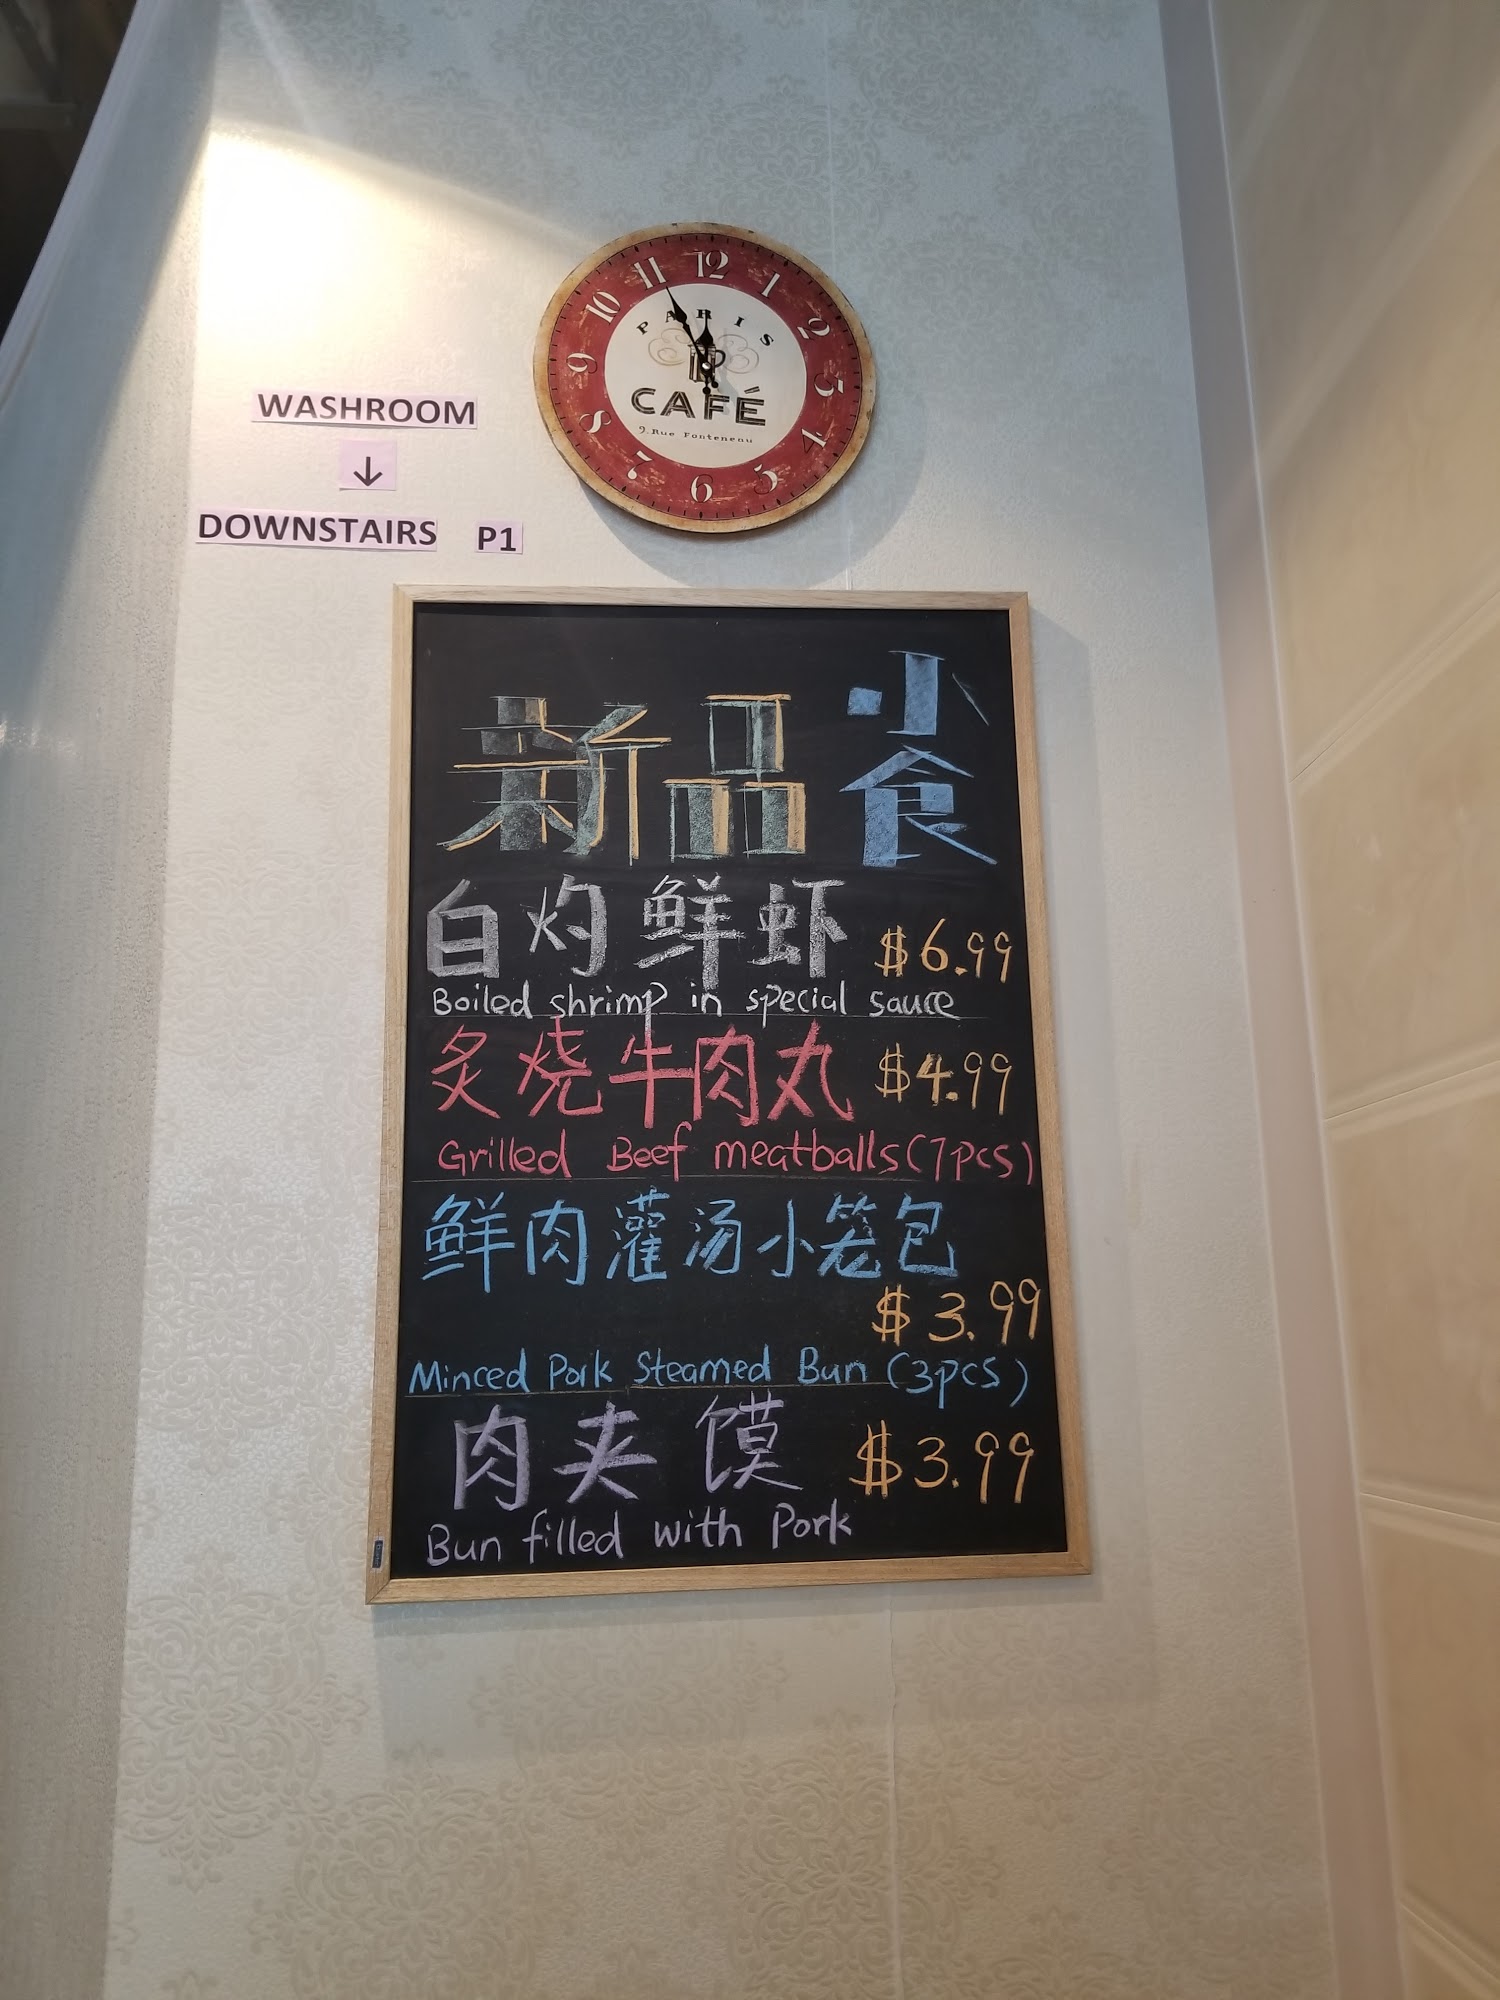 12
1
2
3
4
5
6
7
8
9
10
11
PARIS
CAFÉ
9. Rue Fontenenu
WASHROOM
↓
DOWNSTAIRS P1
新品小食
白灼鲜虾 $6.99
Boiled shrimp in special sauce
炙烧牛肉丸 $4.99
Grilled Beef meatballs (7pcs)
鲜肉灌汤小笼包
$3.99
Minced Pork Steamed Bun (3pcs)
肉夹馍 $3.99
Bun filled with Pork